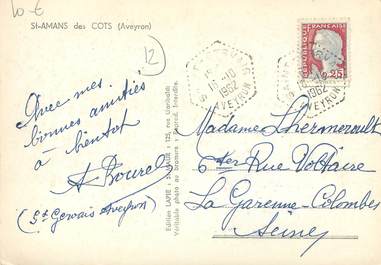 10 €
St-AMANS des COTS (Aveyron)
12
15-10
1962
AVEYRON
15-10
1962
AVEYRON
REPUBLIQUE FRANÇAISE
0,25
Avec mes
bonnes amitiés
à bientôt
A. Bourel
(St Gervais Aveyron)
Edition LAPIE
Véritable photo au bromure - Reprod. interdite.
Madame Lhermeroult
6 ter Rue Voltaire
La Garenne-Colombes
Seine